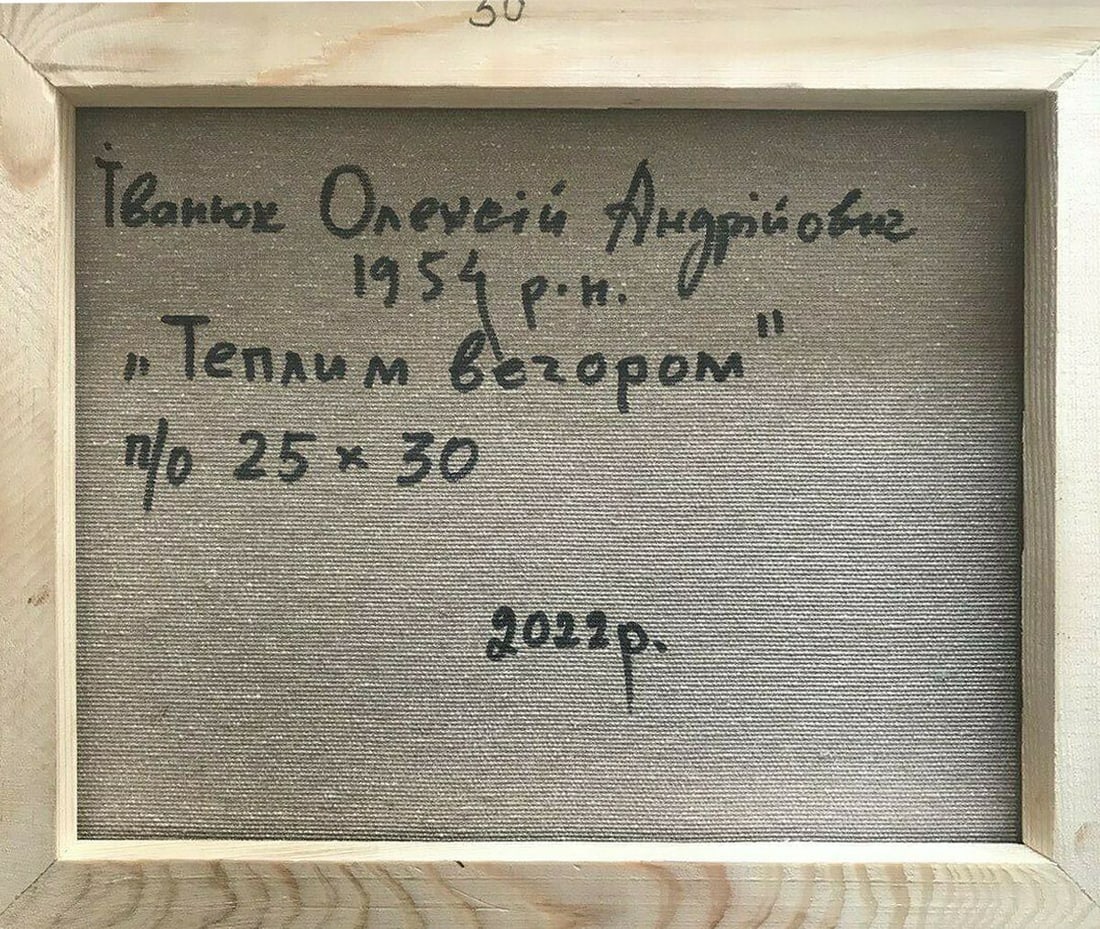 30
Іванюк Олексій Андрійович
1954 р.н.
„Теплим вечором"
п/о 25 × 30
2022р.